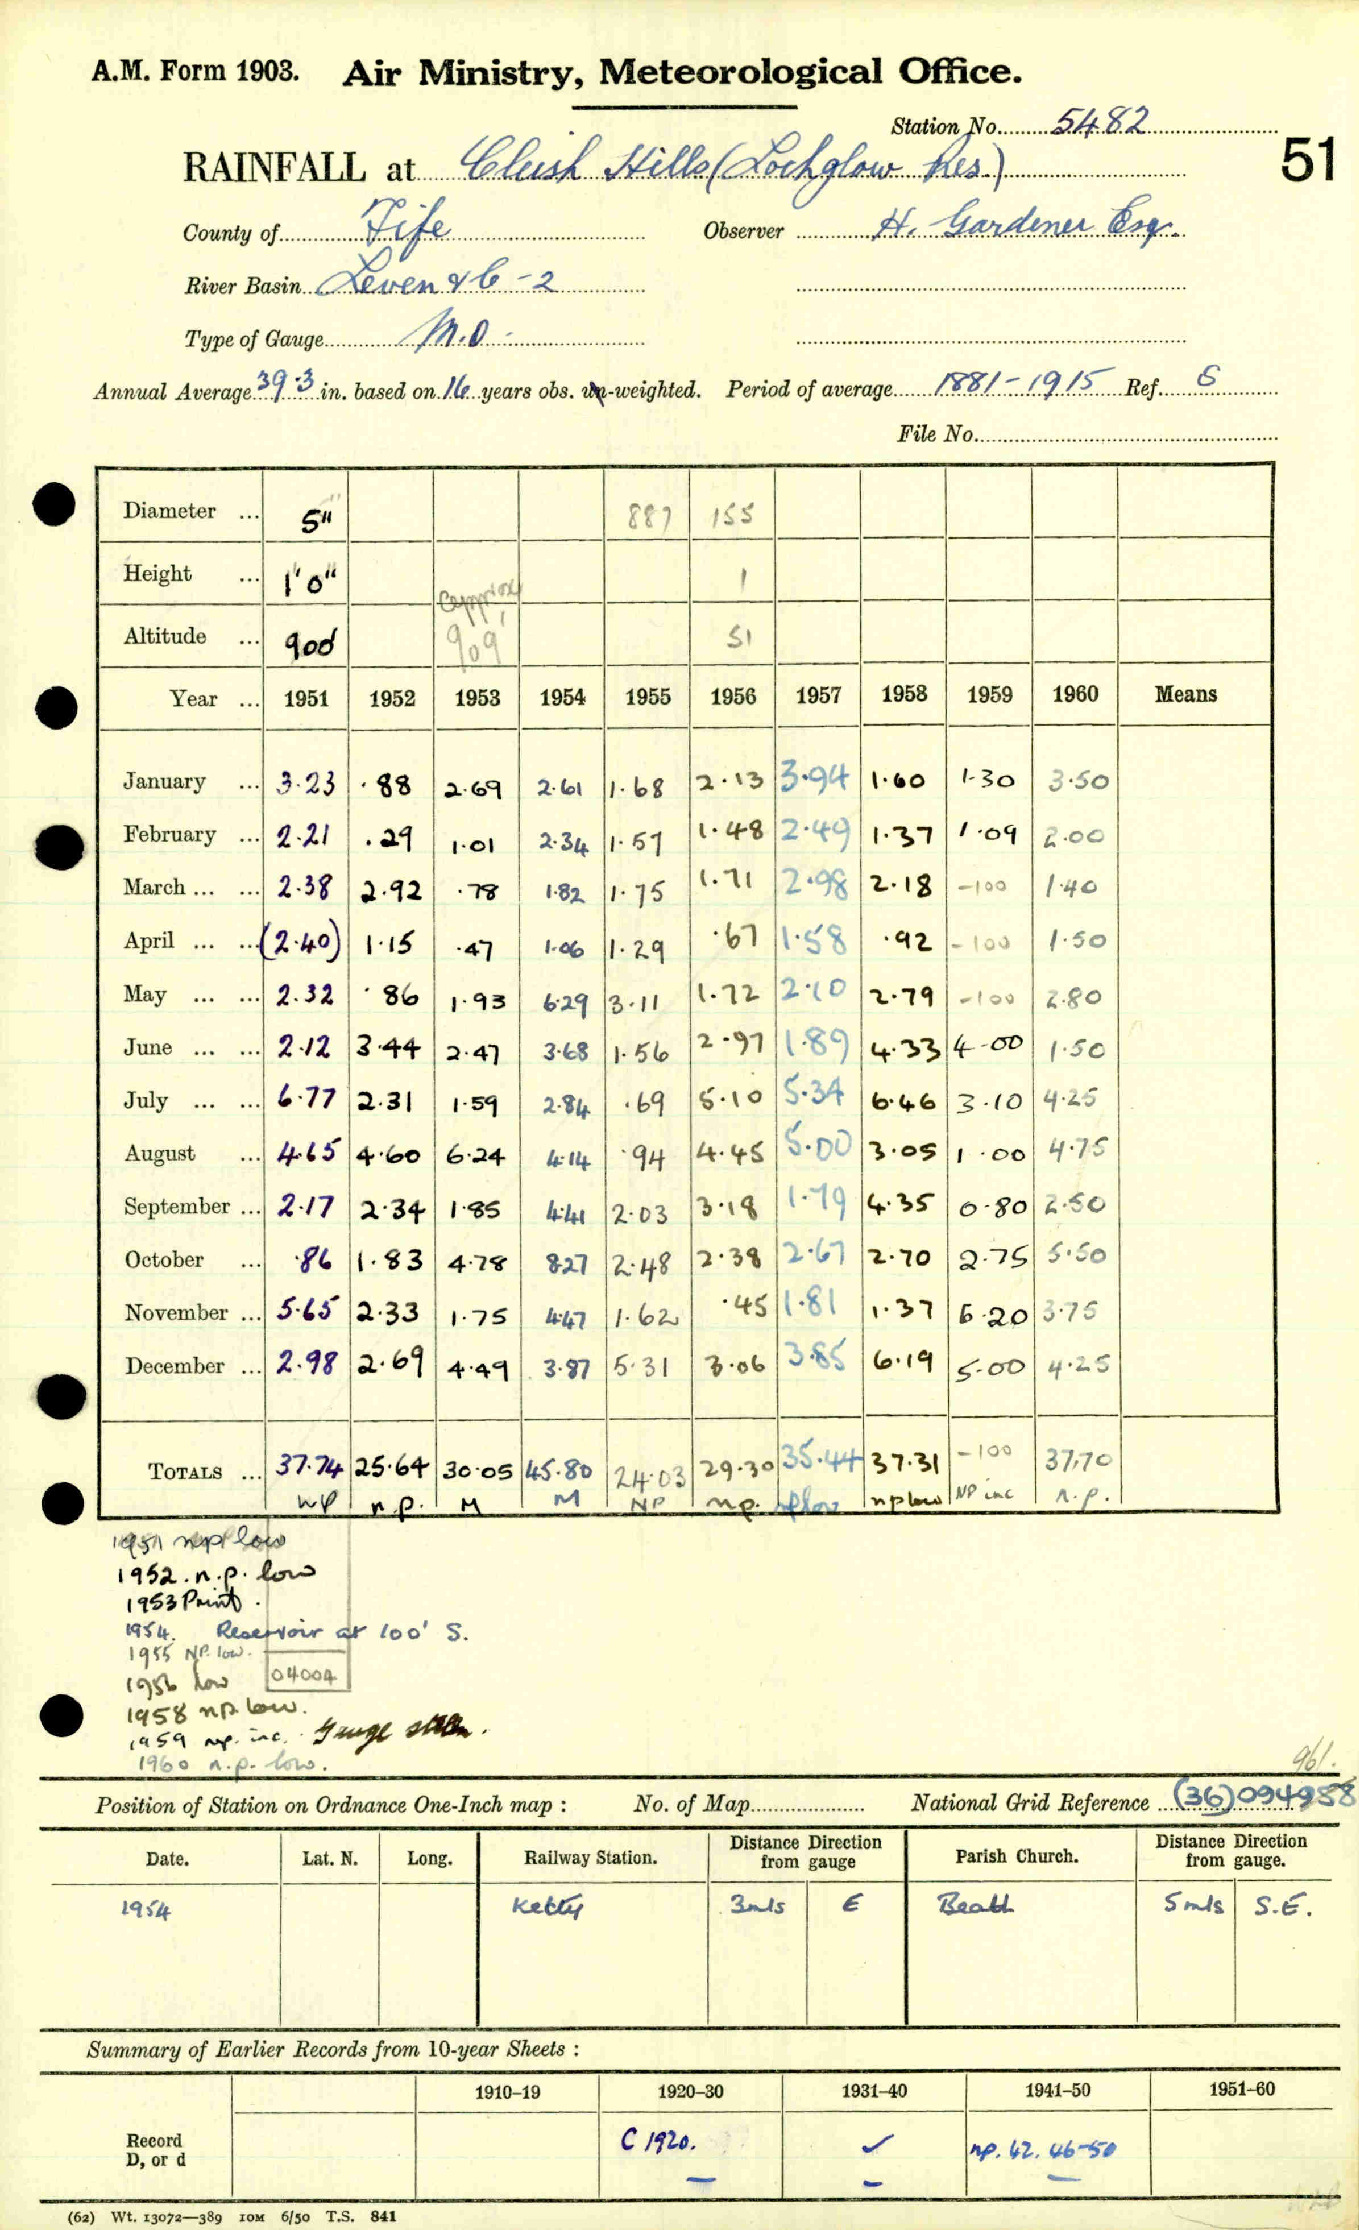 A.M. Form 1903. Air Ministry, Meteorological Office.
Station No. 5482
51
RAINFALL at Cleish Hills (Lochglow Res.)
County of Fife Observer H. Gardener Esq.
River Basin Leven & C - 2
Type of Gauge M.O.
Annual Average 39.3 in. based on 16 years obs. un-weighted. Period of average 1881-1915 Ref. S
File No.
Diameter ... 5" 887 155
Height ... 1'0" 1
Altitude ... 900' approx 909' 51
Year ... 1951 1952 1953 1954 1955 1956 1957 1958 1959 1960 Means
January ... 3.23 .88 2.69 2.61 1.68 2.13 3.94 1.60 1.30 3.50
February ... 2.21 .29 1.01 2.34 1.57 1.48 2.49 1.37 1.09 2.00
March ... ... 2.38 2.92 .78 1.82 1.75 1.71 2.98 2.18 -100 1.40
April ... ... (2.40) 1.15 .47 1.06 1.29 .67 1.58 .92 -100 1.50
May ... ... 2.32 .86 1.93 6.29 3.11 1.72 2.10 2.79 -100 2.80
June ... ... 2.12 3.44 2.47 3.68 1.56 2.97 1.89 4.33 4.00 1.50
July ... ... 6.77 2.31 1.59 2.84 .69 5.10 5.34 6.46 3.10 4.25
August ... 4.65 4.60 6.24 4.14 .94 4.45 5.00 3.05 1.00 4.75
September ... 2.17 2.34 1.85 4.41 2.03 3.18 1.79 4.35 0.80 2.50
October ... .86 1.83 4.78 8.27 2.48 2.38 2.67 2.70 2.75 5.50
November ... 5.65 2.33 1.75 4.47 1.62 .45 1.81 1.37 6.20 3.75
December ... 2.98 2.69 4.49 3.87 5.31 3.06 3.85 6.19 5.00 4.25
TOTALS ... 37.74 25.64 30.05 45.80 24.03 29.30 35.44 37.31 -100 37.70
np n.p. M M NP n.p. np low np low NP inc n.p.
1951 np low
1952. n.p. low
1953 Print.
1954. Reservoir at 100' S.
1955 NP. low.
1956 low 04004
1958 np low.
1959 np. inc. Gauge stolen.
1960 n.p. low.
961.
Position of Station on Ordnance One-Inch map : No. of Map National Grid Reference (36)094958
Date. Lat. N. Long. Railway Station. Distance Direction from gauge Parish Church. Distance Direction from gauge.
1954 Kelty 3mls E Beath 5mls S.E.
Summary of Earlier Records from 10-year Sheets :
1910-19 1920-30 1931-40 1941-50 1951-60
Record D, or d C 1920. ✓ np. 42. 46-50
(62) Wt. 13072—389 10M 6/50 T.S. 841